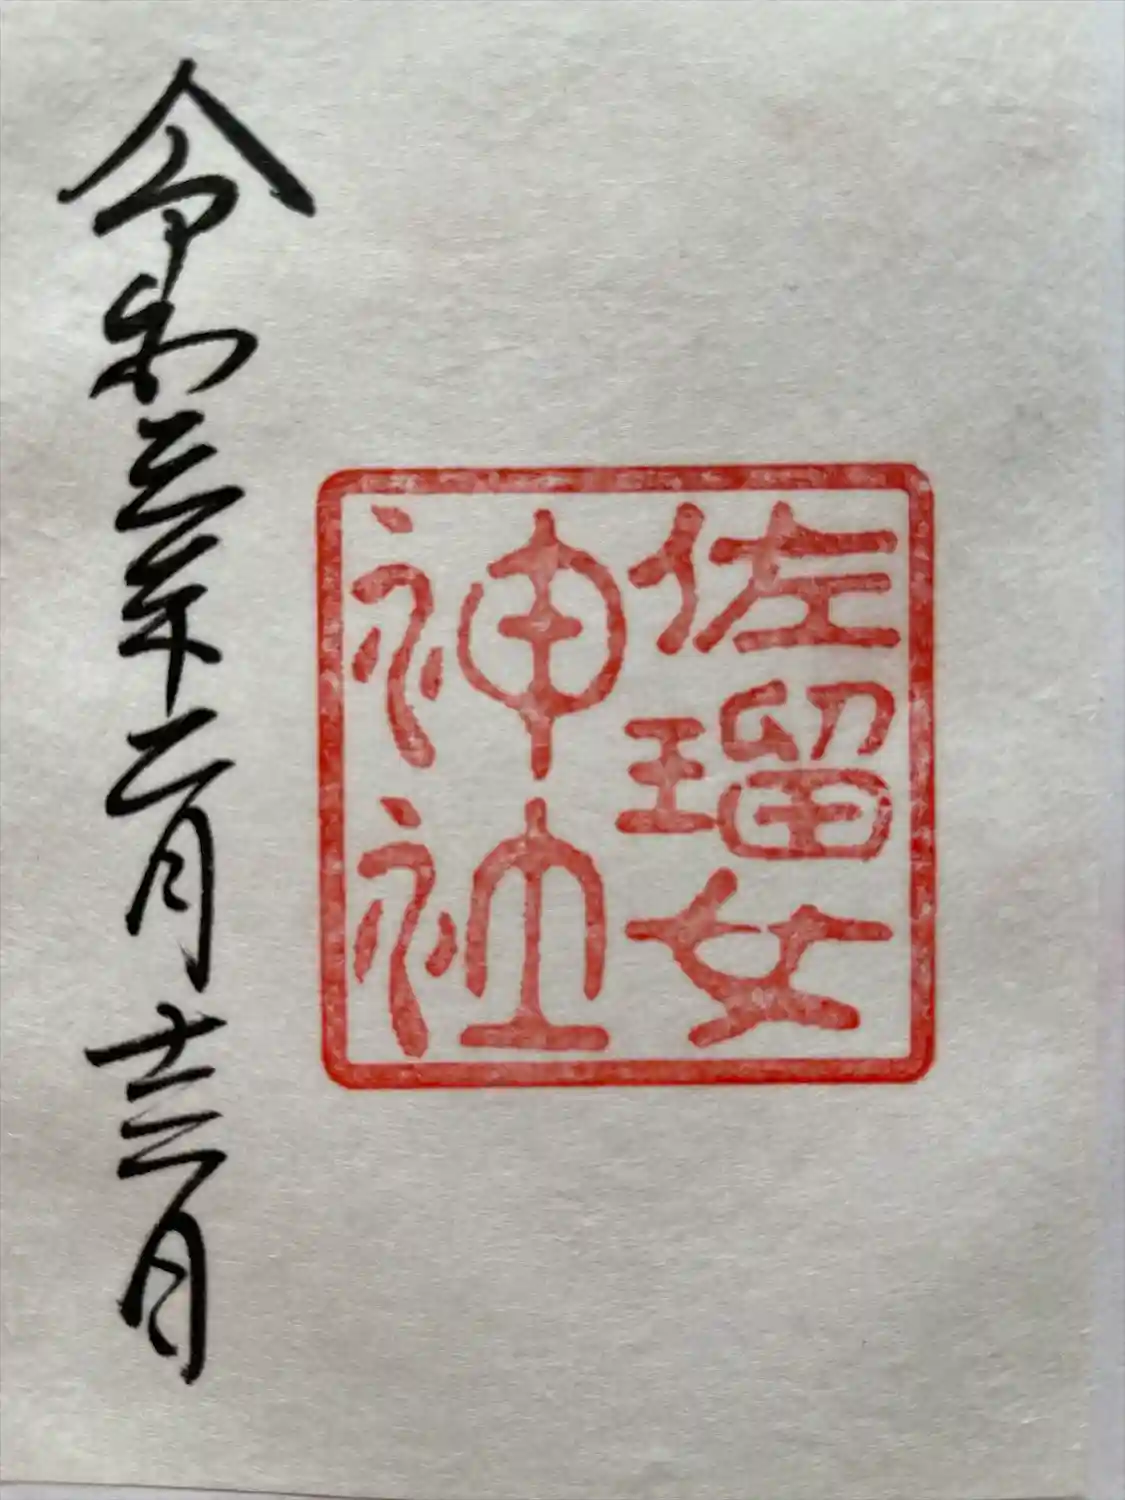 佐瑠女
神社
令和三年二月十三日